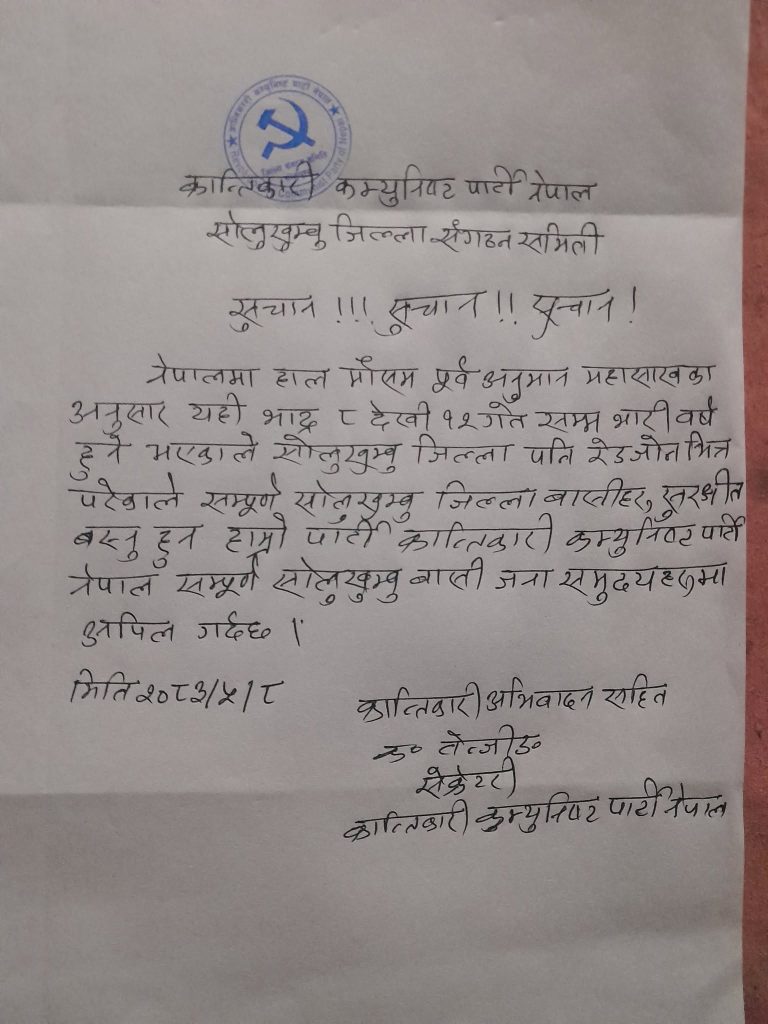 क्रान्तिकारी कम्युनिष्ट पार्टी नेपाल
सोलुखुम्बु जिल्ला संगठन समिती
सुचान !!! सुचान !! सुचान !
नेपालमा हाल मौसम पूर्व अनुमान महासाखका
अनुसार यही भाद्र ८ देखी १२ गते सम्म भारी वर्षा
हुने भएकाले सोलुखुम्बु जिल्ला पनि रेडजोन भित्र
परेकाले सम्पूर्ण सोलुखुम्बु जिल्ला बासीहरु, सुरक्षीत
बस्नु हुन हाम्रो पार्टी क्रान्तिकारी कम्युनिष्ट पार्टी
नेपाल सम्पूर्ण सोलुखुम्बु बासी जना समुदयहरुमा
अपिल गर्दछ ।
मिति २०८३/५/८
क्रान्तिकारी अभिवादन सहित
क०
सेक्रेटरी
क्रान्तिकारी कम्युनिष्ट पार्टी नेपाल